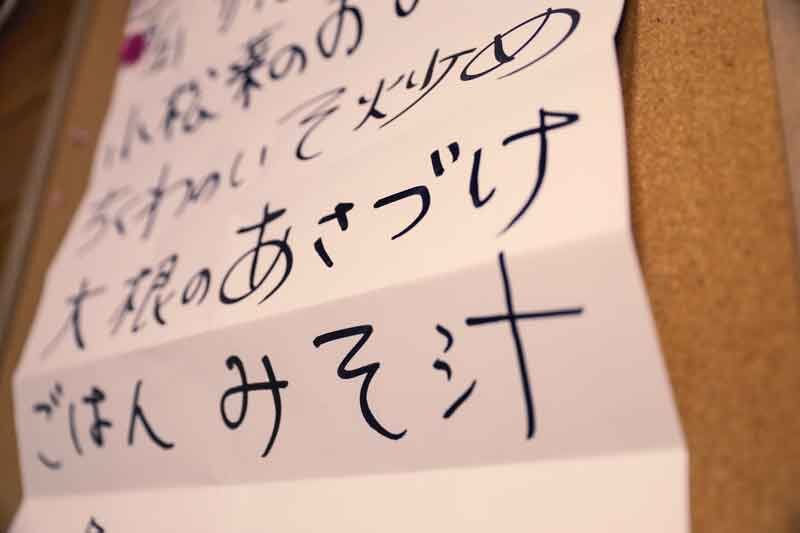 小松菜のお
ちくわのいそ炒め
大根のあさづけ
ごはん みそ汁